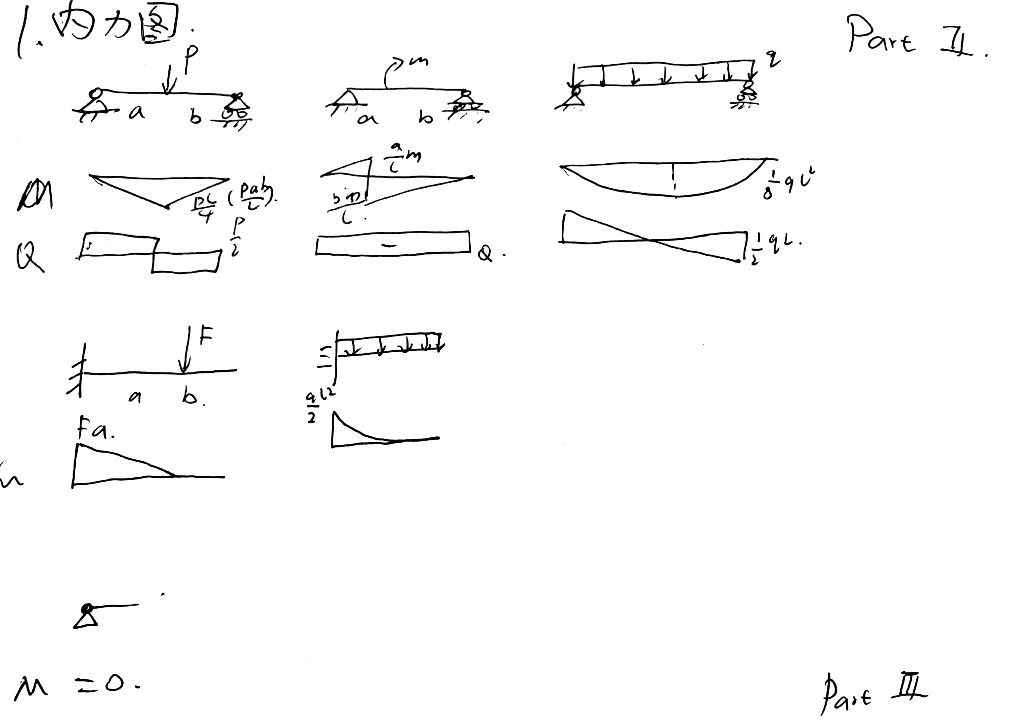 1. 内力图.
Part II.
P
a b
m
a b
q
M
PL/4 (Pab/L).
a/L m
bm/L.
1/8 qL²
Q
P/2
-
Q.
1/2 qL.
F
a b.
Fa.
qL²/2
M
M = 0.
Part III